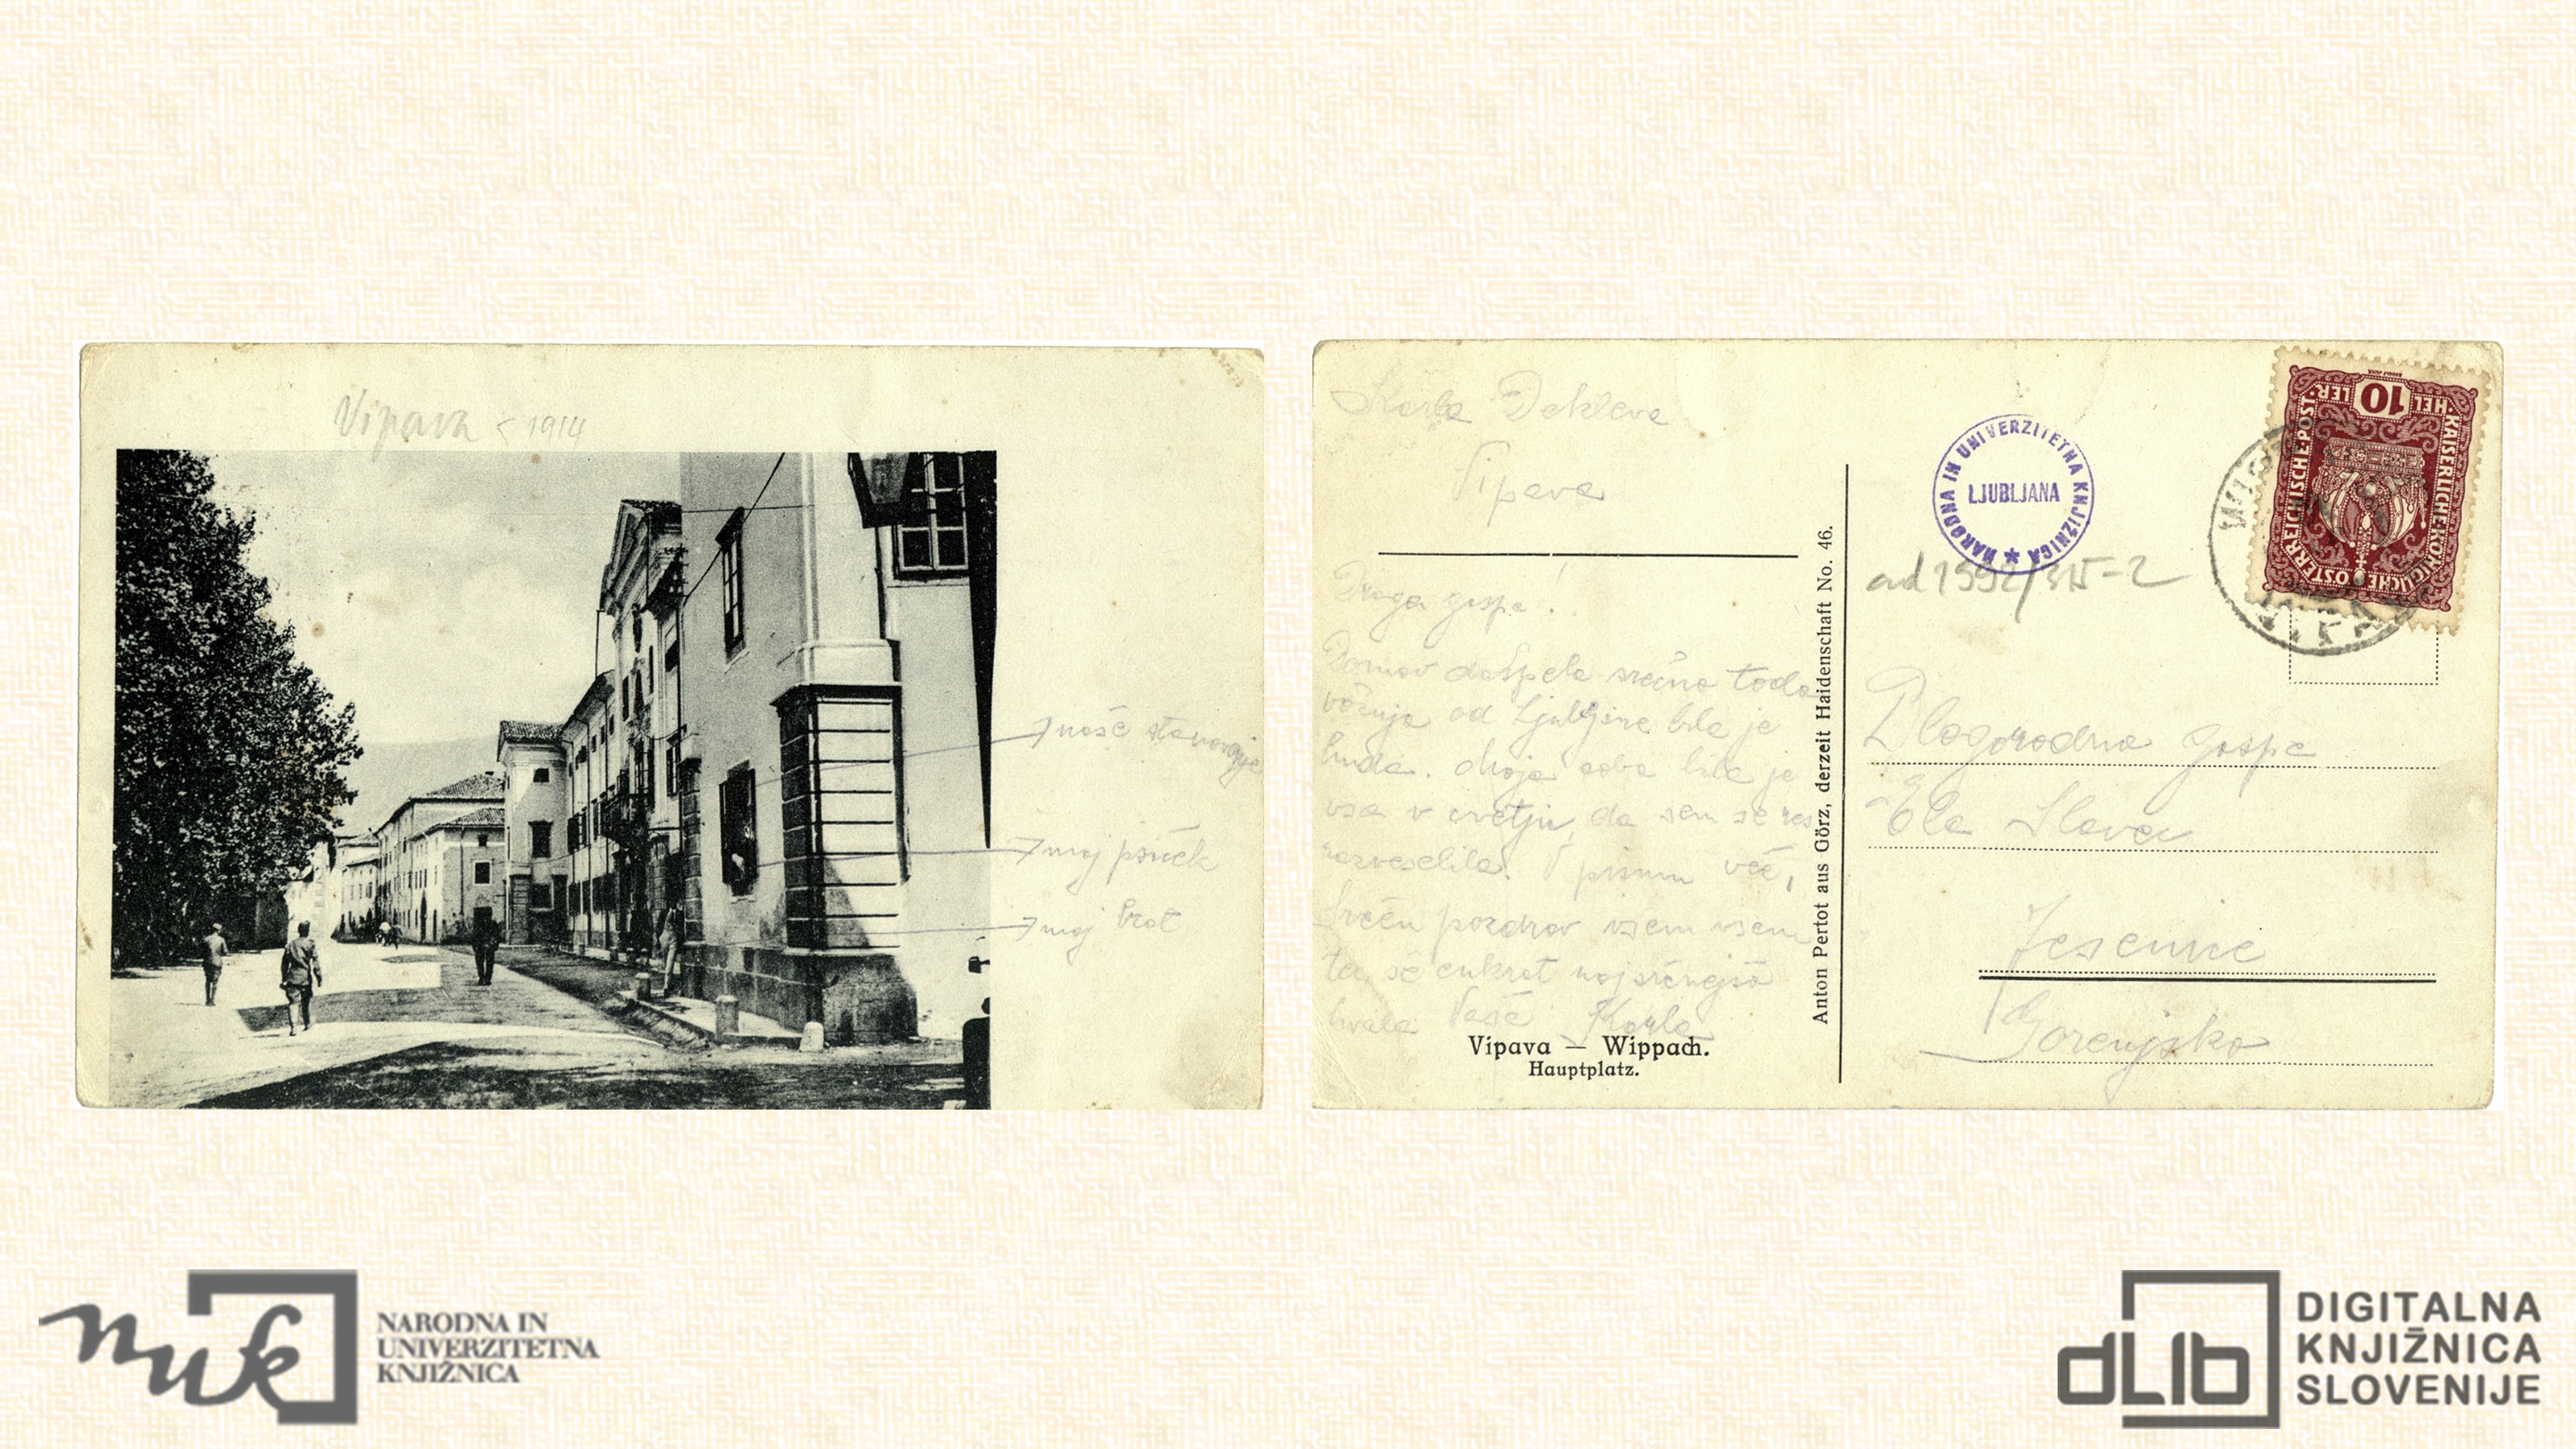 Vipava < 1914
naše stanovanje
moj psiček
moj brat
Karla Dekleva
Vipava
Draga gospa!
Domov dospela srečno toda
vožnja od Ljubljane bila je
huda. Moja soba bila je
vsa v cvetju, da sem se res
razveselila. V pismu več,
Srčen pozdrav vsem vsem
ter še enkrat najsrčnejša
hvala Vaša Karla
Vipava — Wippach.
Hauptplatz.
Anton Pertot aus Görz, derzeit Haidenschaft No. 46.
NARODNA IN UNIVERZITETNA KNJIŽNICA
LJUBLJANA
ad 1592/315-2
KAISERLICHE KÖNIGLICHE ÖSTERREICHISCHE POST
10
HEL LER
Blagorodna gospa
Ela Slavec
Jesenice
Gorenjsko
nuk
NARODNA IN
UNIVERZITETNA
KNJIŽNICA
dLib
DIGITALNA
KNJIŽNICA
SLOVENIJE